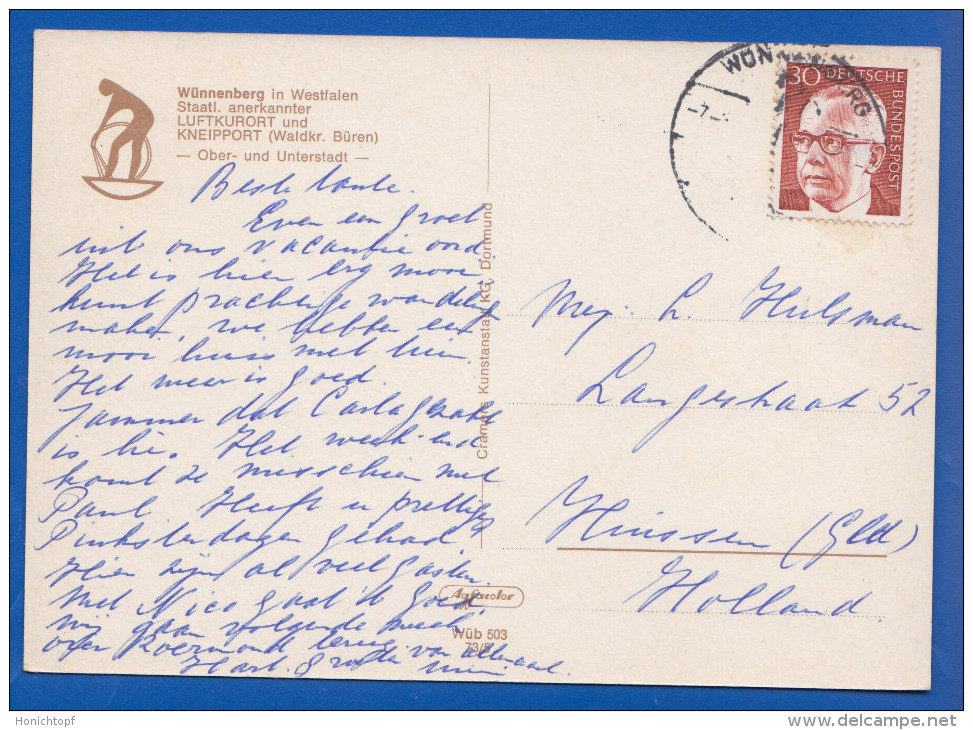 Wünnenberg in Westfalen
Staatl. anerkannter
LUFTKURORT und
KNEIPPORT (Waldkr. Büren)
— Ober- und Unterstadt —
Beste tante.
Even een groet
uit ons vacantie oord.
Het is hier erg mooi
kunt prachtige wandeling
maken, we hebben een
mooi huis met tuin.
Het weer is goed.
Jammer dat Carla
is. Het week-end
komt ze misschien met
Paul. Heeft u prettige
Pinksterdagen gehad.
Hier zijn al veel gasten.
Met Nico gaat 't goed.
wij gaan volgende week
over Roermond terug van allemaal
Hart. Groeten
Cramers Kunstanstalt KG, Dortmund
Agfacolor
Wüb 503
73/5
WÜNNENBERG
-7.
30 DEUTSCHE BUNDESPOST
Mej. L. Hulsman
Langestraat 52
Huissen (Gld)
Holland
Honichtopf
delcampe.net